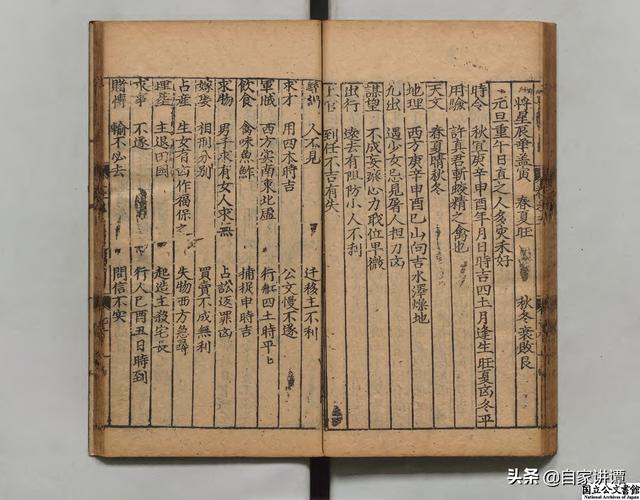 將星辰華蓋寅　春夏旺　秋冬衰敗艮
元旦重午日直之人多灾未好
時令　秋宜庚辛申酉年月日時吉四土月逢生旺夏凶冬平
用驗　許真君斬蛟精之禽也
天文　春夏晴秋冬
地理　西方庚辛申酉巳山向吉水澤燥地
九出　遇少女忌見屠人担刀凶
謀望　不成妄張心力取位卑微
出行　遠去有阻防小人不利
到任不吉有失
人不見　迁移主不利
求才　用四木時吉　公文慢不遂
軍賊　西方实南東北虛　行舡四土時平
飲食　禽味魚鮓　捕捉申時吉
求物　男子求有女人求無　占訟返罪凶
嫁娶　相刑分别　買賣不成無利
占産　生女者凶作福保之　失物西方急尋
埋塟　主退田國　起造主殺宅長
求事　不遂　行人巳酉丑日時到
賭博　輸不必去　問信不实
头条 @自家讲谭
国立公文書館
National Archives of Japan